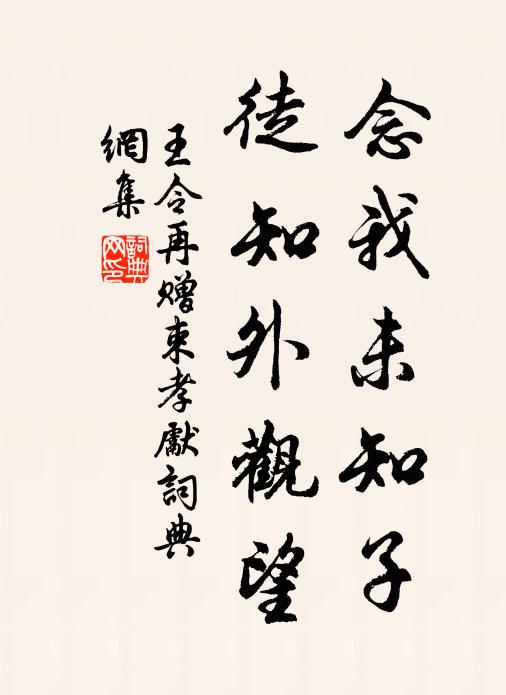 念我未知子
徒知外觀望
王令再赠束孝獻詞典
網集
詞典
网印